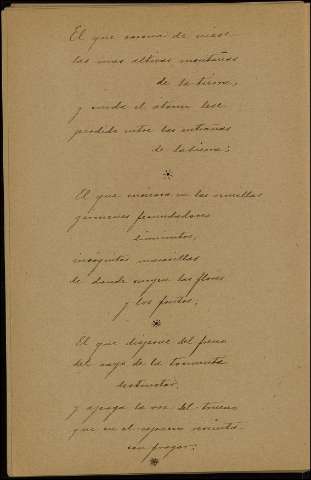 El que corona de nieve
las mas altivas montañas
de la tierra,
y anida el atomo leve
perdido entre las entrañas
de la tierra;
El que encierra en las semillas
gérmenes fecundadores
diminutos,
incógnitas maravillas
de donde surgen las flores
y los frutos;
El que dispone del freno
del rayo de la tormenta
destructor,
y apaga la voz del trueno
que en el espacio revienta
con fragor;